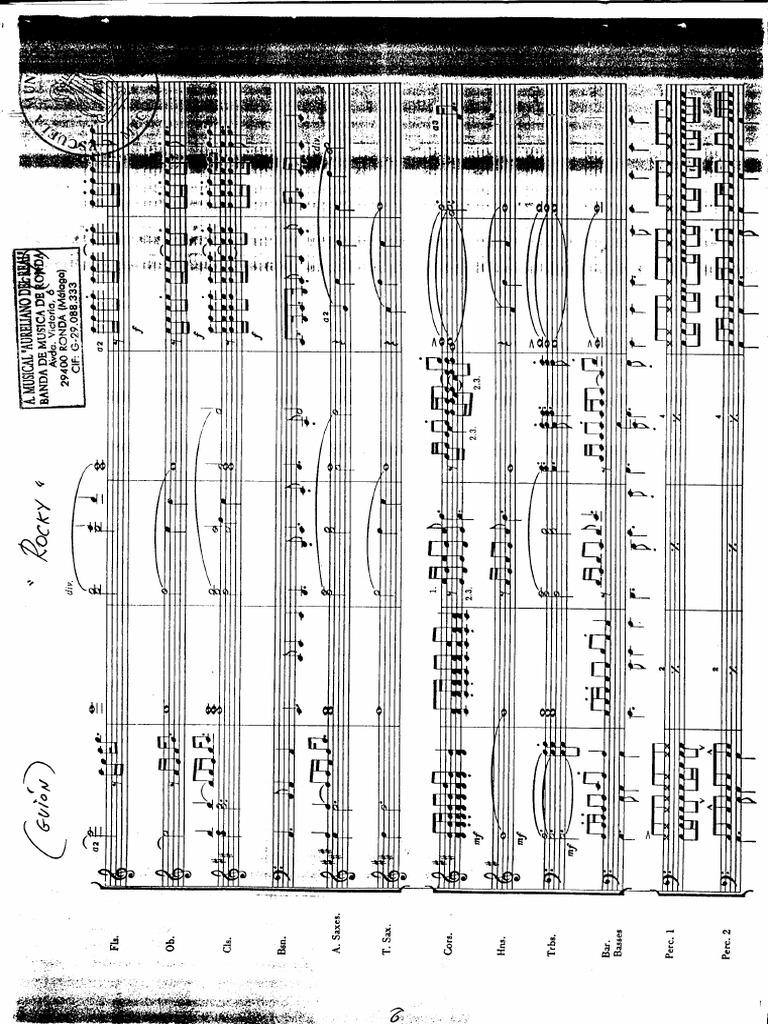 (GUIÓN) "ROCKY"
A. MUSICAL "AURELIANO DEL REAL"
BANDA DE MUSICA DE RONDA
Avda. Victoria, 6
29400 RONDA (Málaga)
CIF: G-29.088.333
Fls. a2 div. a2 f
Ob. f
Cls. f
Bsn.
A. Saxes. a2 div.
T. Sax.
Cors. mf 1. 2.3. 2.3. 2.3. a3
Hns. mf
Trbs. mf
Bar.
Basses
Perc. 1 2 4
Perc. 2 2 4
8